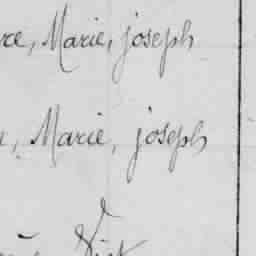 re, Marie, joseph
, Marie, joseph